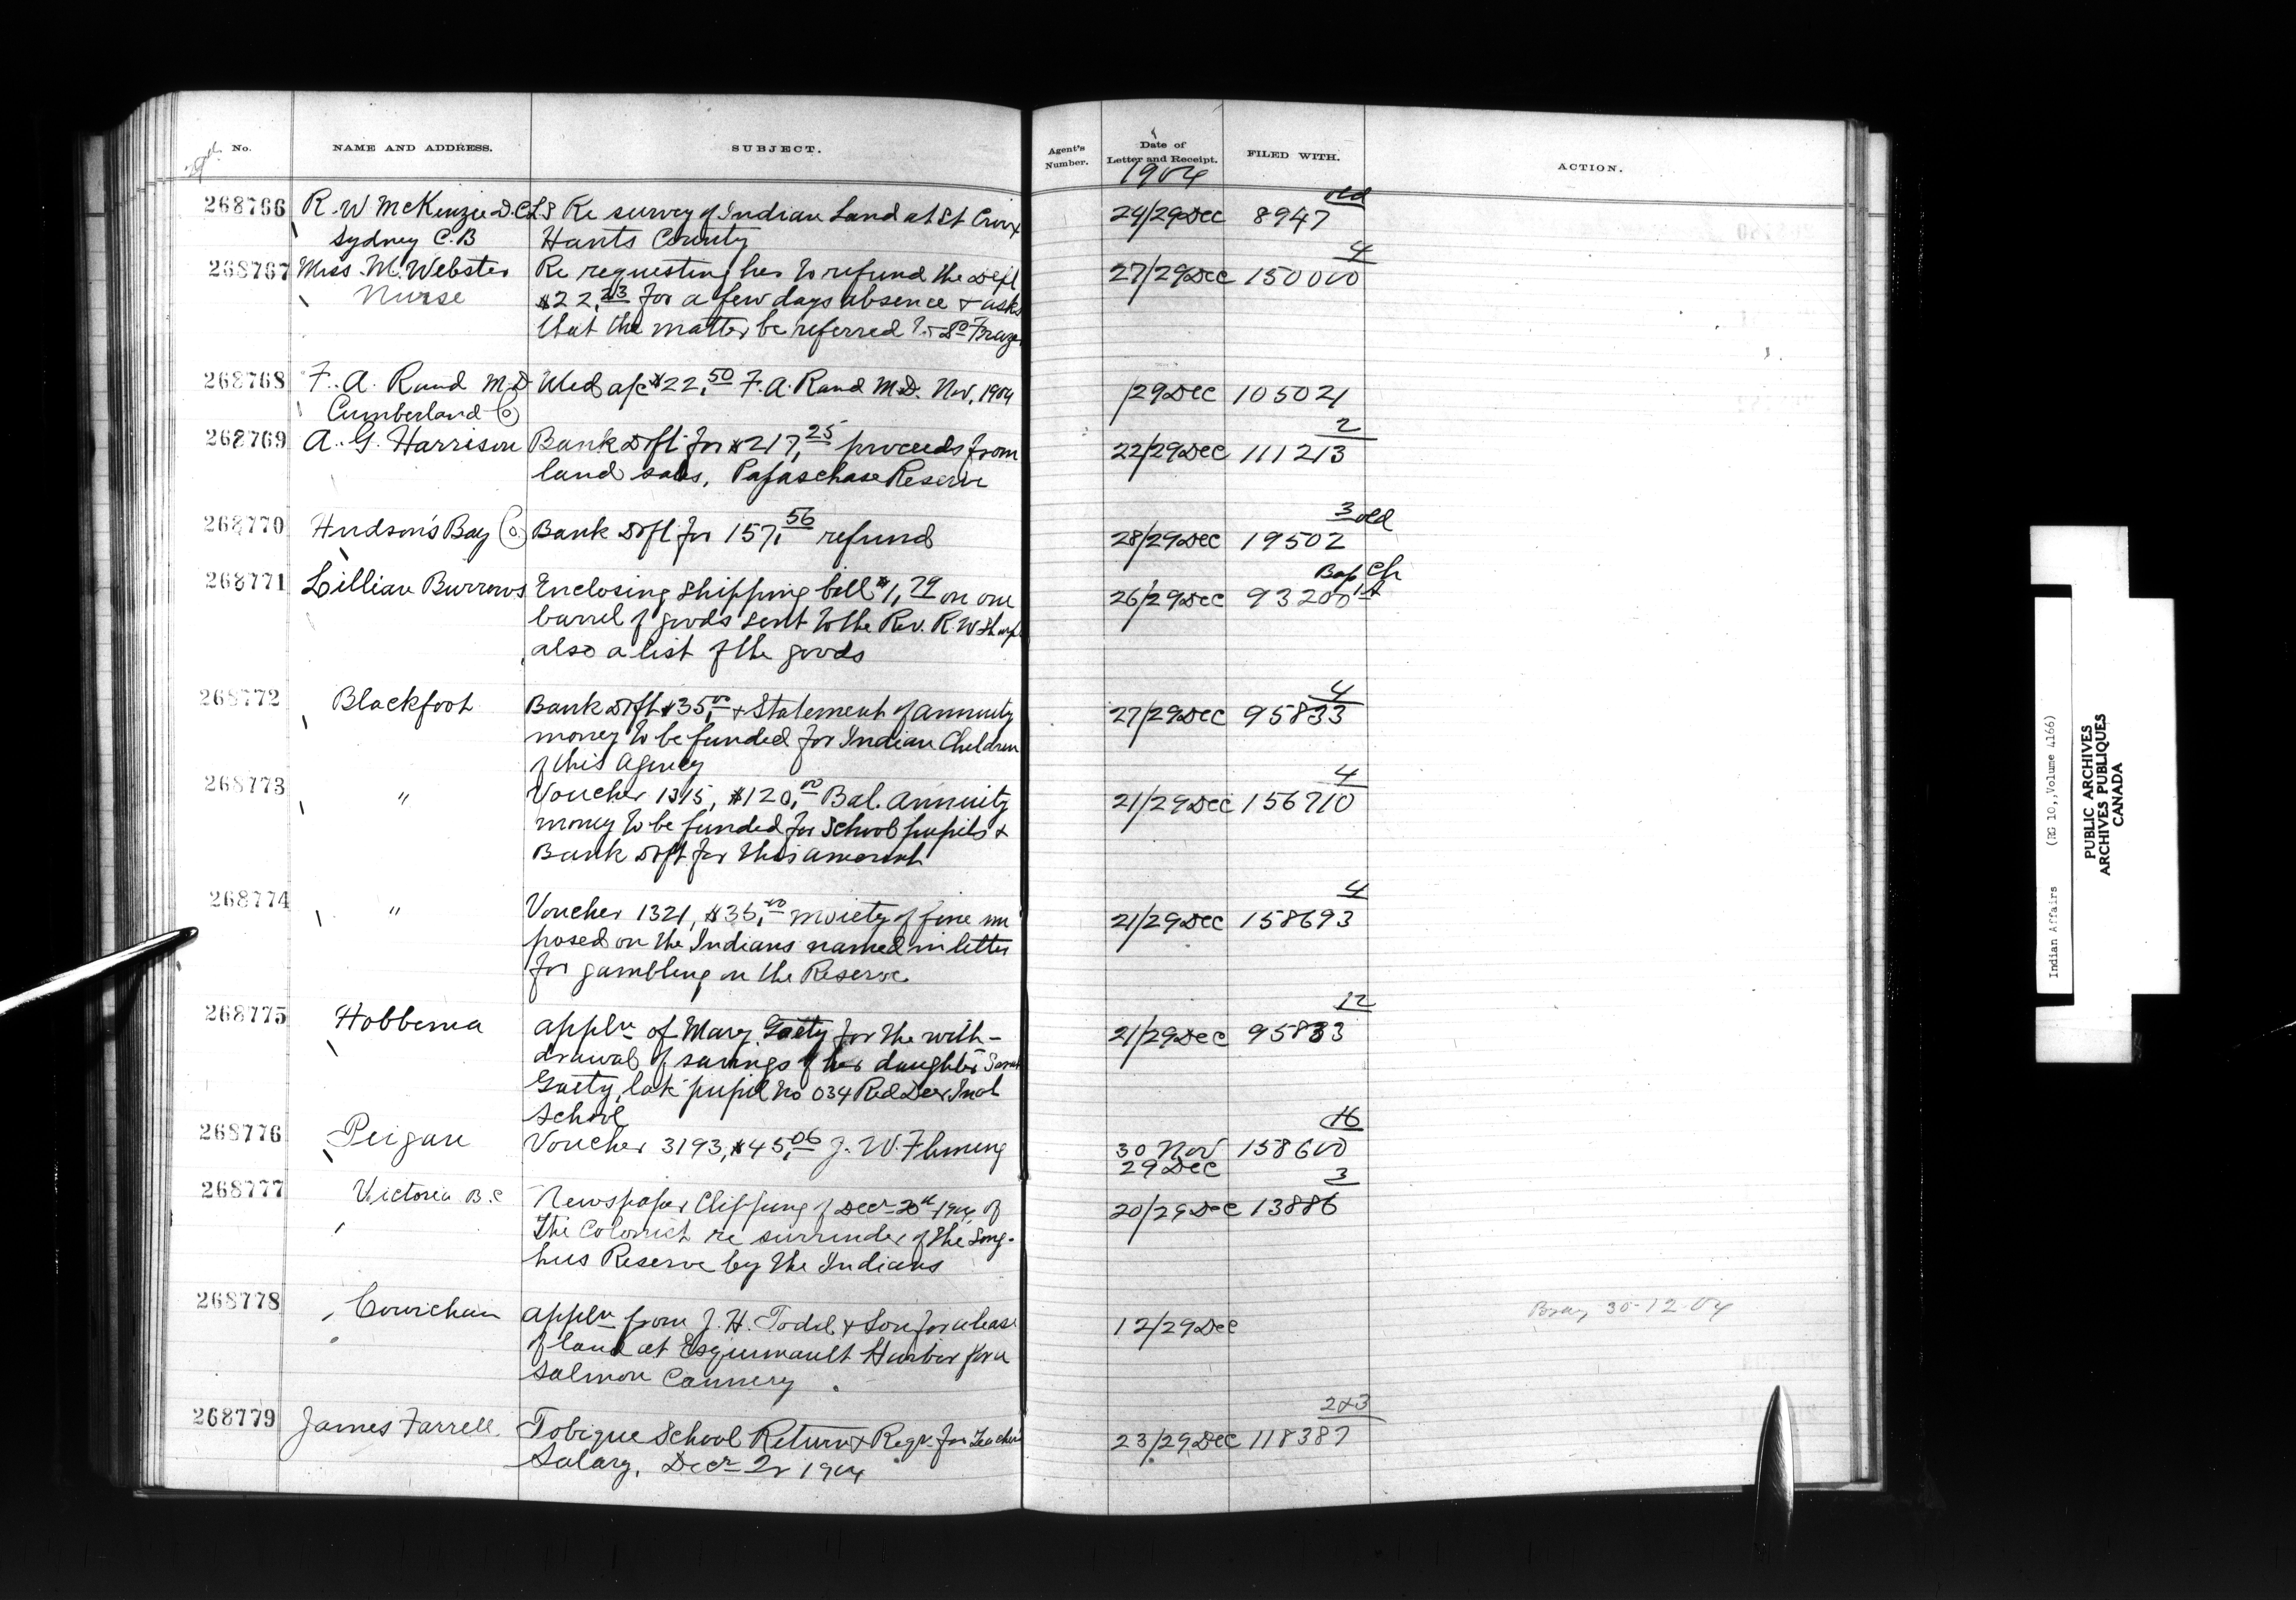 No. NAME AND ADDRESS. SUBJECT. Agent's Number. Date of Letter and Receipt. FILED WITH. ACTION.
1904
268766 R. W McKenzie D.C.L.S Re survey of Indian Land at St Croix 24/29 Dec 8947 old
Sydney C.B Hants County
268767 Miss M. Webster Re requesting her to refund the Dept 27/29 Dec 150000 4
Nurse $22.23 for a few days absence & asks
that the matter be referred to Dr Fraze
268768 F. A. Rand M.D Med a/c $22.50 F. A. Rand M.D. Nov, 1904 /29 Dec 105021
Cumberland Co
268769 A. G. Harrison Bank Dft for $217.25 proceeds from 22/29 Dec 111213 2
land sales, Papaschase Reserve
268770 Hudson's Bay Co. Bank Dft for 157.56 refund 28/29 Dec 19502 3 old
268771 Lillian Burrows Enclosing shipping bill $1.79 on one 26/29 Dec 93200 Bap Ch
barrel of goods sent to the Rev. R. W Sharp
also a list of the goods
268772 Blackfoot Bank Dft $35.00 & Statement of annuity 27/29 Dec 95833 4
money to be funded for Indian Children
of this Agency
268773 " Voucher 1315, $120.00 Bal. Annuity 21/29 Dec 156710 4
money to be funded for School pupils &
Bank Dft for this amount
268774 " Voucher 1321, $35.00 moiety of fine im 21/29 Dec 158693 4
posed on the Indians named in letter
for gambling on the Reserve
268775 Hobbema Appln of Mary Gaety for the with- 21/29 Dec 95833 12
drawal of savings of her daughter Sarah
Gaety, late pupil no 034 Red Deer Indl
School
268776 Peigan Voucher 3193, $45.06 J. W. Fleming 30 Nov 158600 16
29 Dec
268777 Victoria B.C Newspaper Clipping of Decr 20th 1904 of 20/29 Dec 13886 3
the Colonist re surrender of the Song-
hees Reserve by the Indians
268778 Cowichan Appln from J. H. Todd & Son for a lease 12/29 Dec Bray 30-12-04
of land at Esquimault Harbor for a
Salmon Cannery
268779 James Farrell. Tobique School Return & Reqn. for Teachers 23/29 Dec 118387 2&3
Salary, Decr Qr 1904
Indian Affairs (RG 10,, Volume 4166)
PUBLIC ARCHIVES
ARCHIVES PUBLIQUES
CANADA